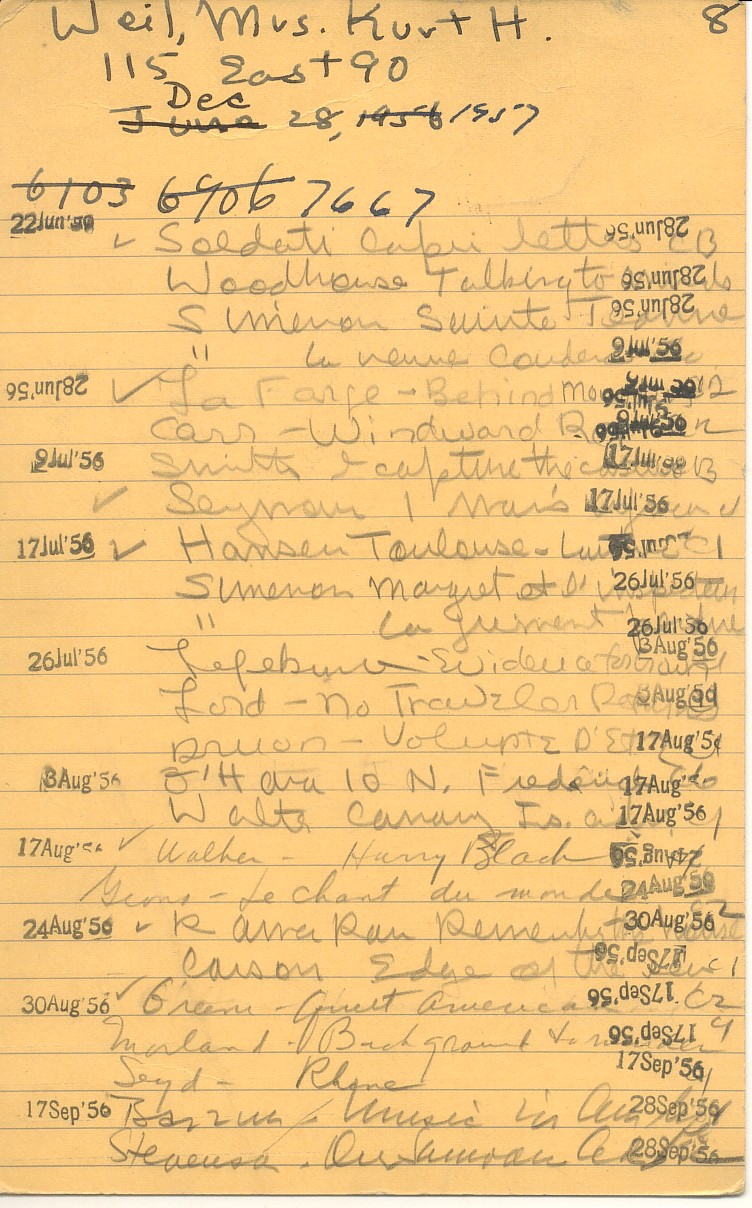 Weil, Mrs. Kurt H. 8
115 East 90
Dec
June 28, 1956 1957
6103 6906 7667
22Jun'56 Soldati Capri letters CB 28Jun'56
Woodhouse Talking to 28Jun'56
Simenon Sainte Jeanne 28Jun'56
" La neuve 9Jul'56
28Jun'56 La Farge - Behind Mo
Carr - Windward
9Jul'56 Smith I capture the castle B 17Jul'56
Seymour 1 Man's 17Jul'56
17Jul'56 Hansen Toulouse-Lau C1
Simenon Maigret et l'inspecteur 26Jul'56
" La 26Jul'56
26Jul'56 Lefebure - Evidence for 3Aug'56
Lord - No Traveler Returns 3Aug'56
Druon - Volupte D'Etre 17Aug'56
3Aug'56 O'Hara 10 N. Frederick 17Aug'56
Walter Canary Is. 17Aug'56
17Aug'56 Walker - Harry Black 24Aug'56
Giono - Le chant du monde 24Aug'56
24Aug'56 Rama Rau Remember the House 30Aug'56
Carson Edge of the Sea 17Sep'56
30Aug'56 Green - Quiet American C2 17Sep'56
Morland - Background to 17Sep'56
Seyd - Rhone 17Sep'56
17Sep'56 Barzun - Music in Am 28Sep'56
Stevenson - Our Samoan 28Sep'56